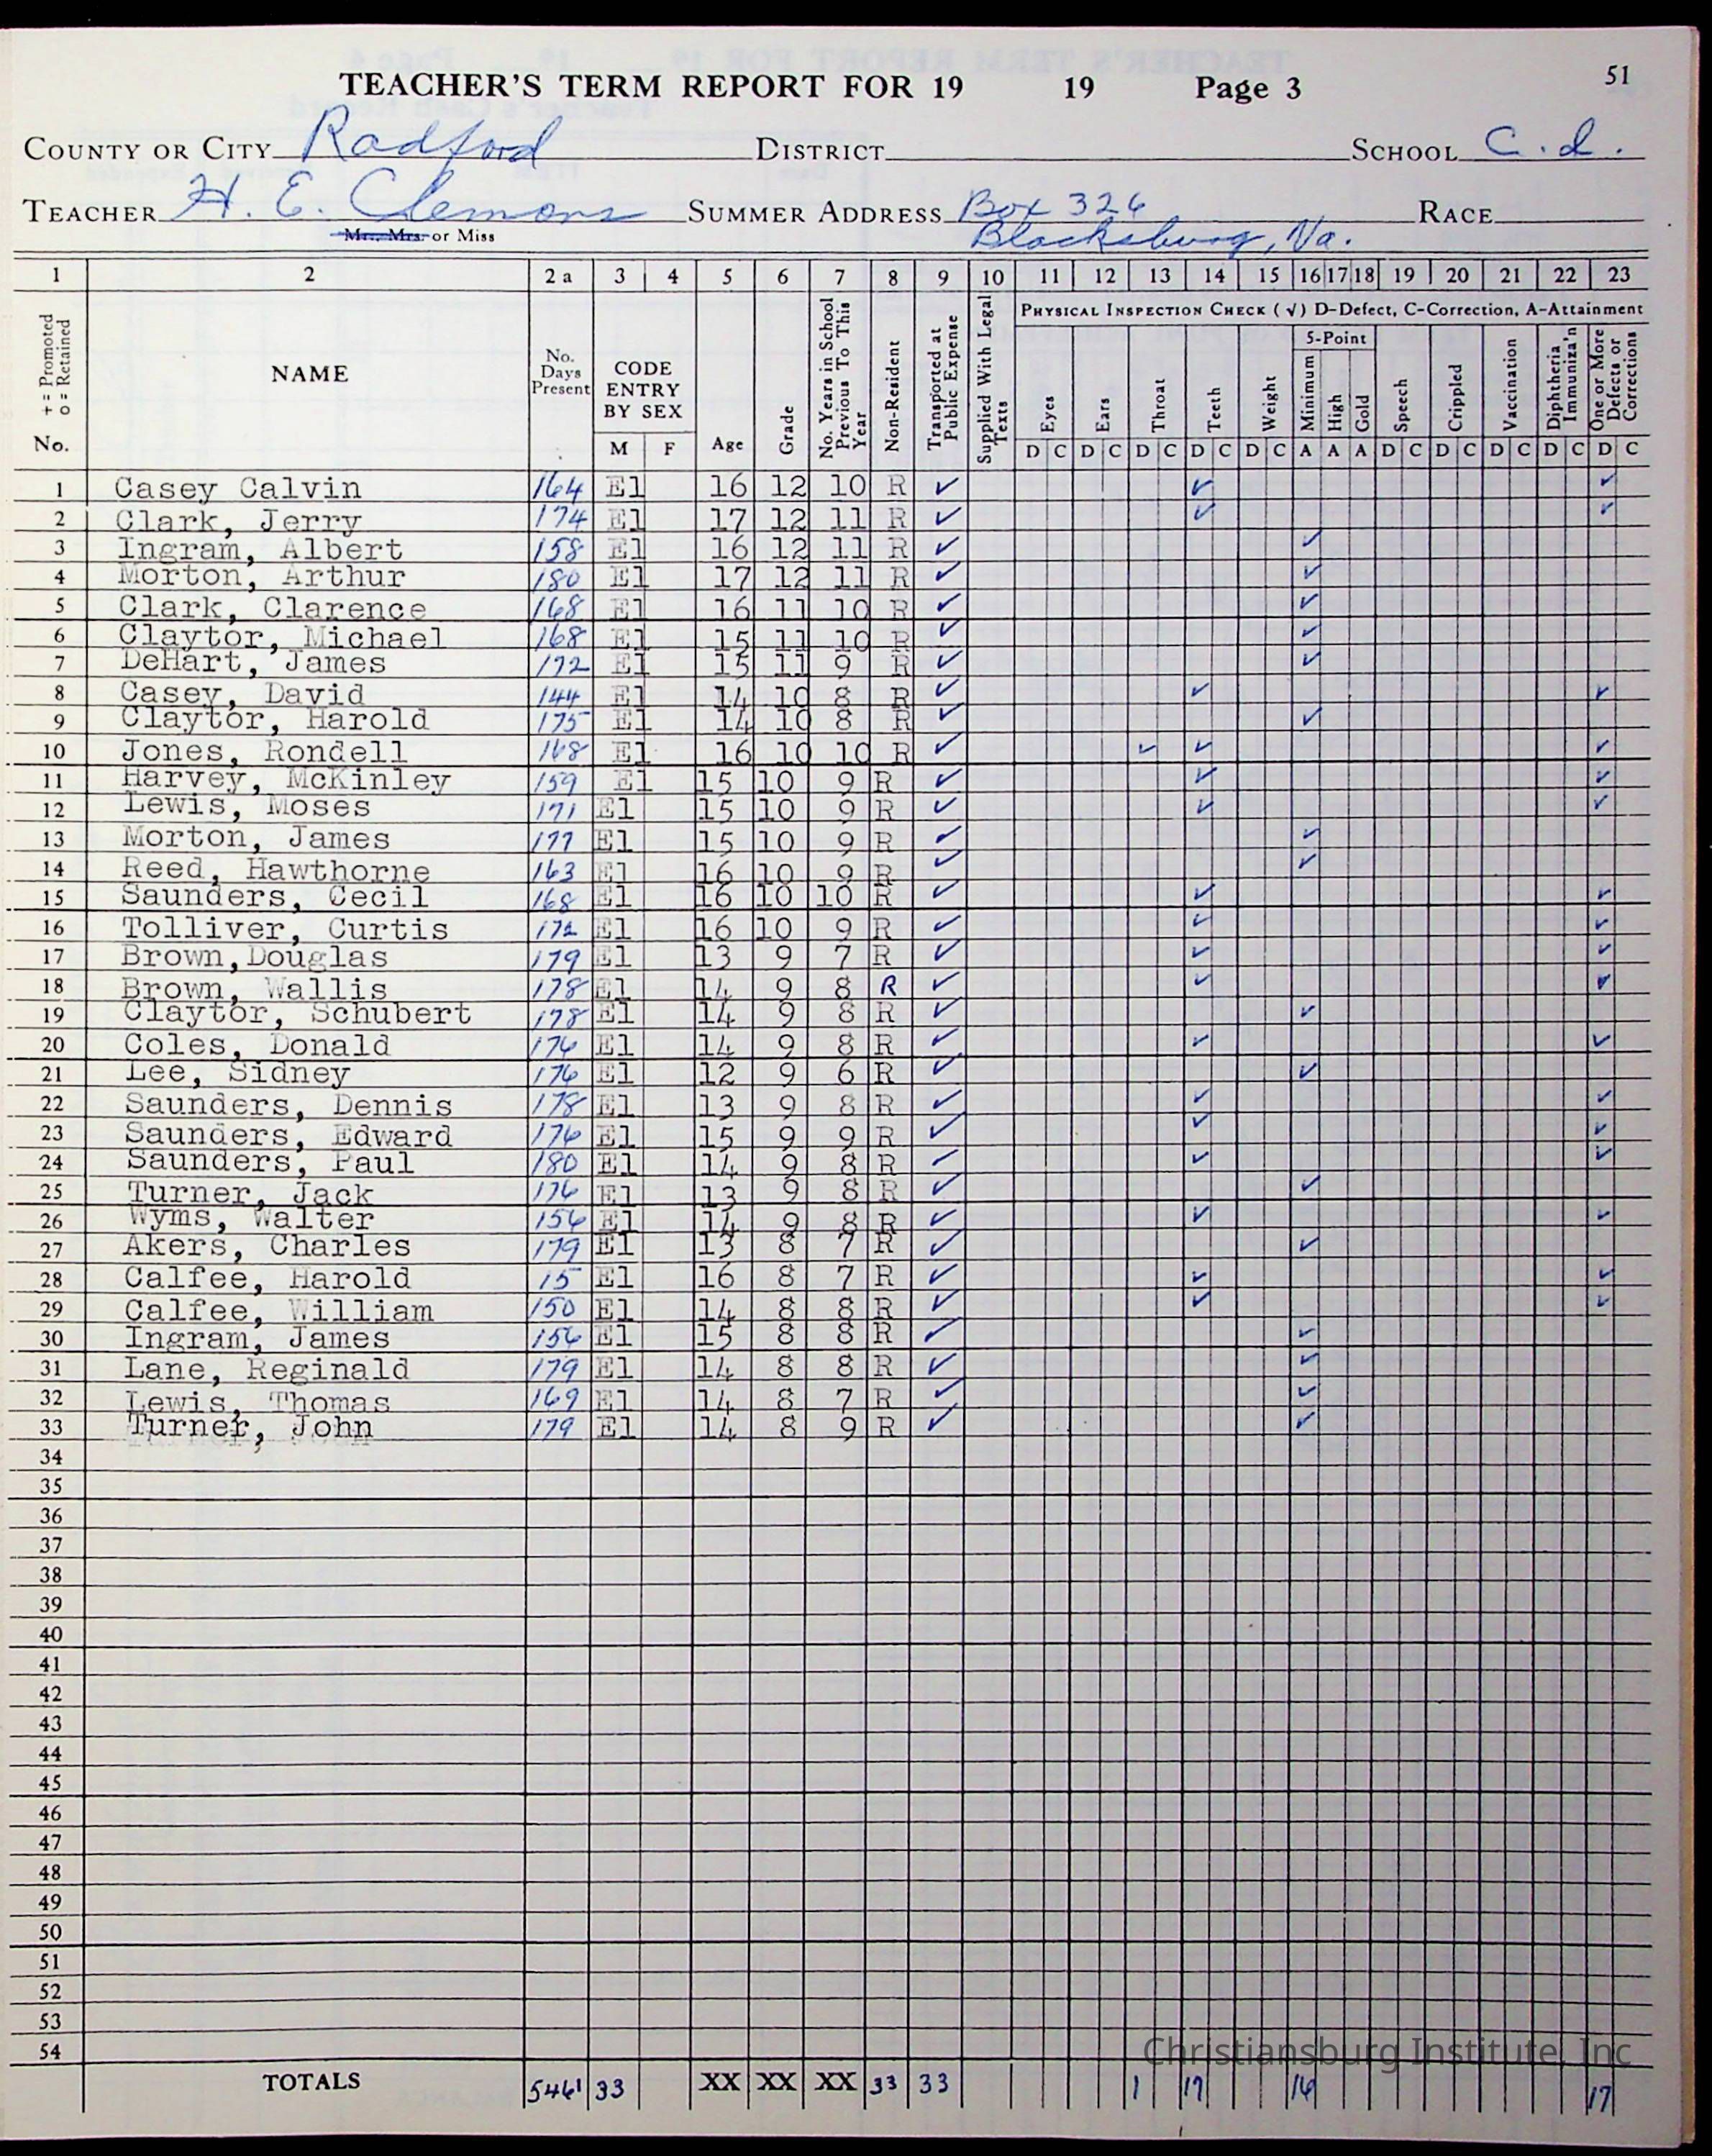 TEACHER'S TERM REPORT FOR 19 19 Page 3 51
COUNTY OR CITY Radford DISTRICT SCHOOL C.I.
TEACHER H. E. Clemons SUMMER ADDRESS Box 326 RACE
Mr., Mrs. or Miss Blacksburg, Va.
1 2 2 a 3 4 5 6 7 8 9 10 11 12 13 14 15 16 17 18 19 20 21 22 23
No. + = Promoted o = Retained
NAME
No. Days Present
CODE ENTRY BY SEX
M F
Age
Grade
No. Years in School Previous To This Year
Non-Resident
Transported at Public Expense
Supplied With Legal Texts
PHYSICAL INSPECTION CHECK (√) D-Defect, C-Correction, A-Attainment
Eyes Ears Throat Teeth Weight
5-Point
Minimum High Gold
Speech Crippled Vaccination
Diphtheria Immuniza'n
One or More Defects or Corrections
D C D C D C D C D C A A A D C D C D C D C D C
1 Casey Calvin 164 El 16 12 10 R ✓ ✓ ✓
2 Clark, Jerry 174 El 17 12 11 R ✓ ✓ ✓
3 Ingram, Albert 158 El 16 12 11 R ✓ ✓
4 Morton, Arthur 180 El 17 12 11 R ✓ ✓
5 Clark, Clarence 168 El 16 11 10 R ✓ ✓
6 Claytor, Michael 168 El 15 11 10 R ✓ ✓
7 DeHart, James 172 El 15 11 9 R ✓ ✓
8 Casey, David 144 El 14 10 8 R ✓ ✓ ✓
9 Claytor, Harold 175 El 14 10 8 R ✓ ✓
10 Jones, Rondell 168 El 16 10 10 R ✓ ✓ ✓ ✓
11 Harvey, McKinley 159 El 15 10 9 R ✓ ✓ ✓
12 Lewis, Moses 171 El 15 10 9 R ✓ ✓ ✓
13 Morton, James 177 El 15 10 9 R ✓ ✓
14 Reed, Hawthorne 163 El 16 10 9 R ✓ ✓
15 Saunders, Cecil 168 El 16 10 10 R ✓ ✓ ✓
16 Tolliver, Curtis El 16 10 9 R ✓ ✓ ✓
17 Brown,Douglas 179 El 13 9 7 R ✓ ✓ ✓
18 Brown, Wallis 178 El 14 9 8 R ✓ ✓ ✓
19 Claytor, Schubert 178 El 14 9 8 R ✓ ✓
20 Coles, Donald 176 El 14 9 8 R ✓ ✓ ✓
21 Lee, Sidney 176 El 12 9 6 R ✓ ✓
22 Saunders, Dennis 178 El 13 9 8 R ✓ ✓ ✓
23 Saunders, Edward 176 El 15 9 9 R ✓ ✓ ✓
24 Saunders, Paul 180 El 14 9 8 R ✓ ✓ ✓
25 Turner, Jack 176 El 13 9 8 R ✓ ✓
26 Wyms, Walter 156 El 14 9 8 R ✓ ✓ ✓
27 Akers, Charles 179 El 13 8 7 R ✓ ✓
28 Calfee, Harold 15 El 16 8 7 R ✓ ✓ ✓
29 Calfee, William 150 El 14 8 8 R ✓ ✓ ✓
30 Ingram, James 156 El 15 8 8 R ✓ ✓
31 Lane, Reginald 179 El 14 8 8 R ✓ ✓
32 Lewis, Thomas 169 El 14 8 7 R ✓ ✓
33 Turner, John 179 El 14 8 9 R ✓ ✓
34
35
36
37
38
39
40
41
42
43
44
45
46
47
48
49
50
51
52
53
54
Christiansburg Institute, Inc
TOTALS 5461 33 XX XX XX 33 33 1 17 16 17